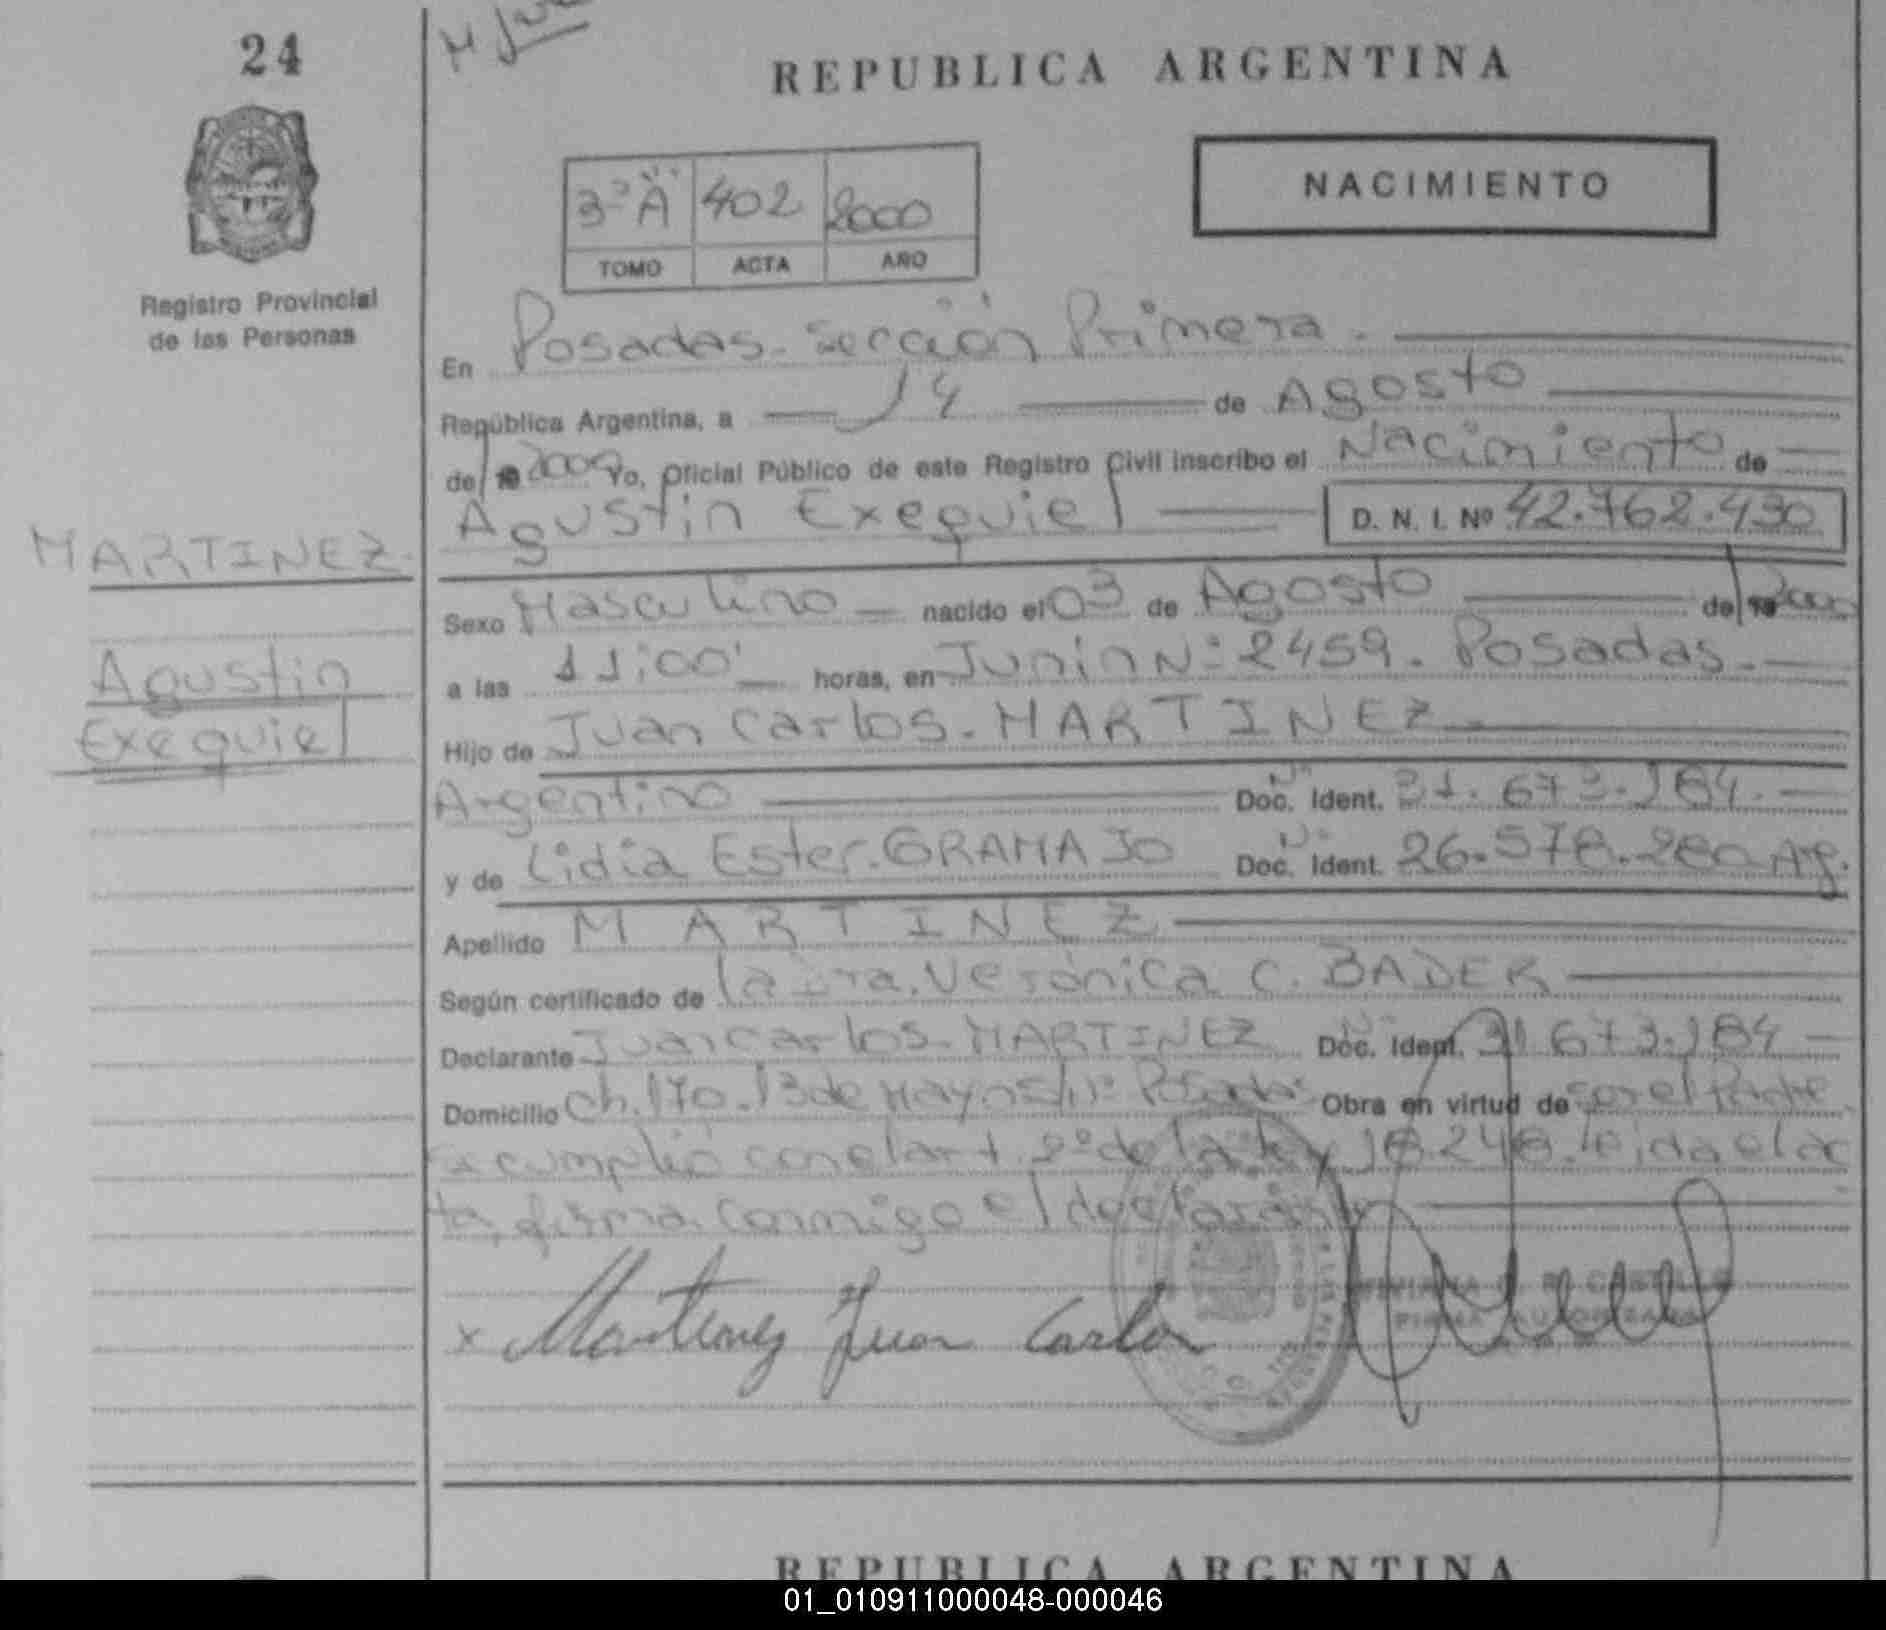 24
REPUBLICA ARGENTINA
NACIMIENTO
3º "A" 402 2000
TOMO ACTA AÑO
Registro Provincial
de las Personas
En Posadas. Sección Primera.
República Argentina, a 14 de Agosto
de 19 2000 Yo, Oficial Público de este Registro Civil inscribo el Nacimiento de
Agustin Exequiel D. N. I. Nº 42.762.430
MARTINEZ.
Agustin
Exequiel
Sexo Masculino nacido el 03 de Agosto de 19 2000
a las 11:00' horas, en Junin Nº 2459. Posadas.
Hijo de Juan Carlos. MARTINEZ
Argentino Doc. Ident. Nº 31.673.184.
y de Lidia Ester. GRAMAJO Doc. Ident. Nº 26.578.280 Arg.
Apellido MARTINEZ
Según certificado de la Dra. Verónica C. BADER
Declarante Juan Carlos. MARTINEZ Doc. Ident. Nº 31.673.184
Domicilio Ch. 170. 13 de Mayo s/nº Posadas Obra en virtud de ser el Padre.
Se cumplió con el art. 2º de la ley 18.248. leida el ac
ta, firma conmigo el declarante
x Martinez Juan Carlos
CASTILLO
FIRMA AUTORIZADA
REPUBLICA ARGENTINA
01_010911000048-000046